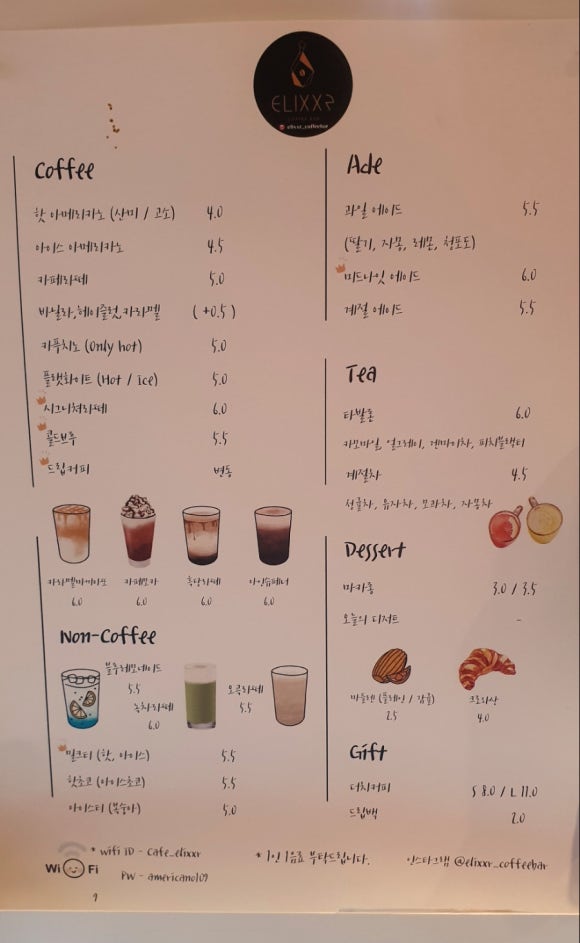 ELIXXR
elixxr_coffeebar
Coffee
핫 아메리카노 (산미 / 고소) 4.0
아이스 아메리카노 4.5
카페라떼 5.0
바닐라,헤이즐럿,카라멜 (+0.5)
카푸치노 (Only hot) 5.0
플랫화이트 (Hot / Ice) 5.0
시그니쳐라떼 6.0
콜드브루 5.5
드립커피 변동
카라멜마끼아또 카페모카 흑당라떼 아인슈페너
6.0 6.0 6.0 6.0
Non-Coffee
블루레모네이드
5.5
녹차라떼
6.0
오곡라떼
5.5
밀크티 (핫, 아이스) 5.5
핫초코 (아이스초코) 5.5
아이스티 (복숭아) 5.0
Ade
과일 에이드 5.5
(딸기, 자몽, 레몬, 청포도)
미드나잇 에이드 6.0
계절 에이드 5.5
Tea
타발론 6.0
카모마일, 얼그레이, 겐마이차, 피치블랙티
계절차 4.5
청귤차, 유자차, 모과차, 자몽차
Dessert
마카롱 3.0 / 3.5
오늘의 디저트 -
마들렌 (플레인 / 감귤) 크로와상
2.5 4.0
Gift
더치커피 S 8.0 / L 11.0
드립백 2.0
Wi Fi
* wifi ID - Cafe_elixxr
PW - americano109
* 1인 1음료 부탁드립니다.
인스타그램 @elixxr_coffeebar